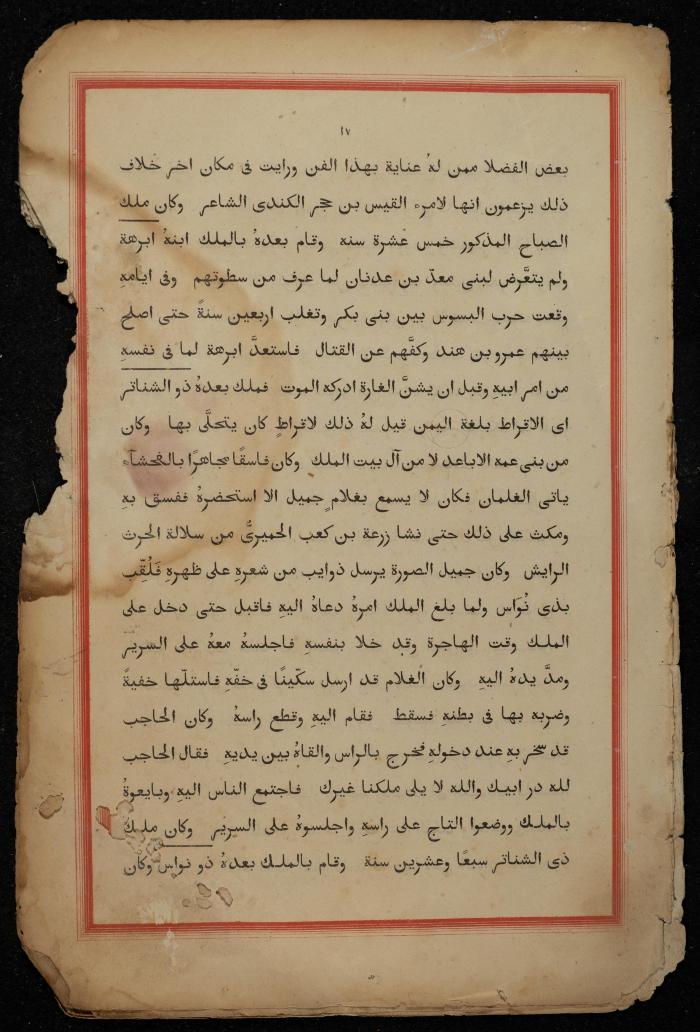 ١٧
بعض الفضلا ممن لهُ عناية بهذا الفن ورايت فى مكان اخر خلاف
ذلك يزعمون انها لامرء القيس بن حجر الكندى الشاعر وكان ملك
الصباح المذكور خمس عشرة سنه وقام بعدهُ بالملك ابنهُ ابرهة
ولم يتعَّرض لبنى معدّ بن عدنان لما عرف من سطوتهم وفى ايامهِ
وقعت حرب البسوس بين بنى بكر وتغلب اربعين سنةً حتى اصلح
بينهم عمرو بن هند وكفَّهم عن القتال فاستعدَّ ابرهة لما فى نفسهِ
من امر ابيهِ وقبل ان يشنَّ الغارة ادركه الموت فملك بعدهُ ذو الشناتر
اى الاقراط بلغة اليمن قيل لهُ ذلك لاقراطٍ كان يتحلَّى بها وكان
من بنى عمه الاباعد لا من آل بيت الملك وكان فاسقًا مجاهرًا بالفحشآء
ياتى الغلمان فكان لا يسمع بغلامٍ جميل الا استحضرهُ ففسق بهِ
ومكث على ذلك حتى نشا زرعة بن كعب الحميرىُّ من سلالة الحرث
الرايش وكان جميل الصورة يرسل ذوايب من شعرهِ على ظهرهِ فَلُقِّب
بذى نُوَاس ولما بلغ الملك امرهُ دعاهُ اليهِ فاقبل حتى دخل على
الملك وقت الهاجرة وقد خلا بنفسهِ فاجلسهُ معهُ على السرير
ومدَّ يدهُ اليهِ وكان الغلام قد ارسل سكّينًا فى خفّهِ فاستلّها خفيةً
وضربه بها فى بطنهِ فسقط فقام اليهِ وقطع راسهُ وكان الحاجب
قد سخر بهِ عند دخولهِ فخرج بالراس والقاهُ بين يديهِ فقال الحاجب
لله در ابيك والله لا يلى ملكنا غيرك فاجتمع الناس اليهِ وبايعوهُ
بالملك ووضعوا التاج على راسهِ واجلسوهُ على السرير وكان ملك
ذى الشناتر سبعًا وعشرين سنة وقام بالملك بعدهُ ذو نواس وكان